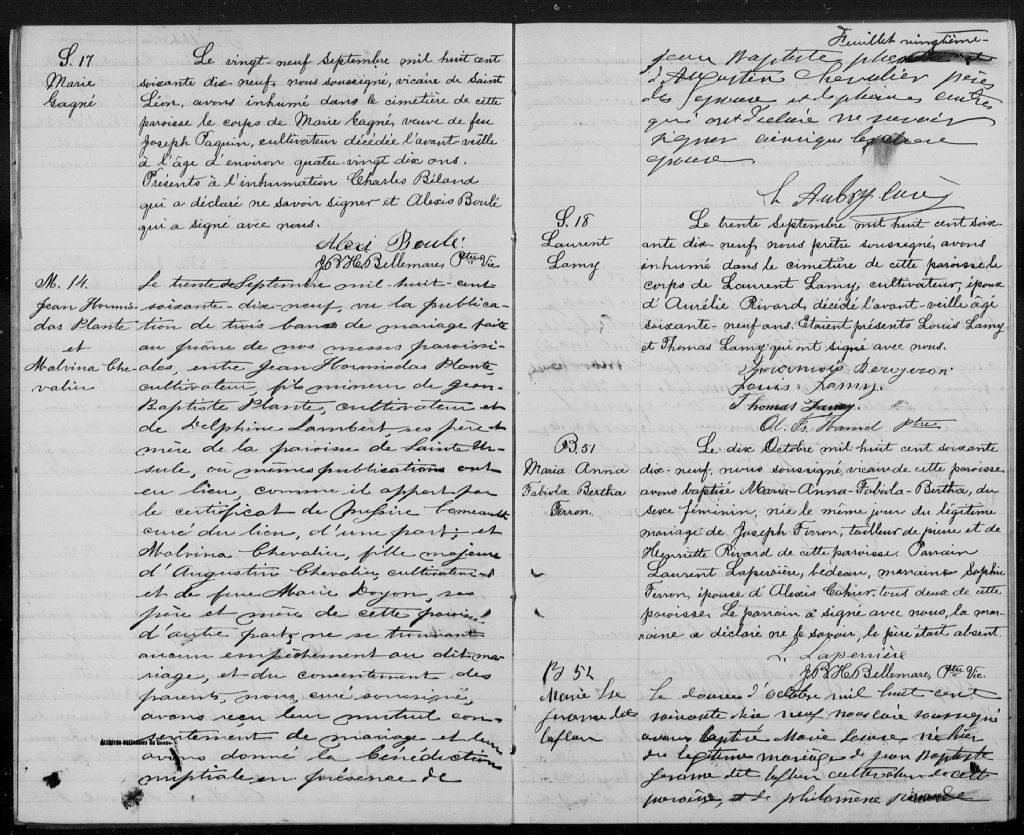 S. 17
Marie
Gagné
Le vingt-neuf Septembre mil huit cent
soixante dix-neuf, nous soussigné, vicaire de Saint
Léon, avons inhumé dans le cimetière de cette
paroisse le corps de Marie Gagné, veuve de feu
Joseph Paquin, cultivateur décédée l'avant-veille
à l'âge d'environ quatre-vingt dix ans.
Présents à l'inhumation Charles Béland
qui a déclaré ne savoir signer et Alexis Boulé
qui a signé avec nous.
Alexi Boulé
J.B.H. Bellemare, Ptre Vic.
M. 14.
Jean Hormis-
das Plante
et
Malvina Che-
valier
Le trente Septembre mil-huit-cent
soixante-dix-neuf, vu la publica-
tion de trois bans de mariage faite
au prône de nos messes paroissi-
ales, entre Jean Hormisdas Plante
cultivateur, fils mineur de Jean-
Baptiste Plante, cultivateur et
de Delphine Lambert ses père et
mère de la paroisse de Sainte Ur-
sule, où mêmes publications ont
eu lieu, comme il appert par
le certificat de Messire
curé du lieu, d'une part; et
Malvina Chevalier, fille majeure
d'Augustin Chevalier, cultivateur
et de feue Marie Doyon, ses
père et mère de cette paroisse
d'autre part, ne se trouvant
aucun empêchement au dit ma-
riage, et du consentement des
parents, nous, curé soussigné,
avons reçu leur mutuel con-
sentement de mariage et leur
avons donné la bénédiction
nuptiale en présence de
Archives nationales du Québec
Feuillet vingtième-
Jean Baptiste et
d'Augustin Chevalier père
de l'épouse et de plusieurs autres
qui ont déclaré ne savoir
signer ainsi que
épouse
L. Aubry, curé
S. 18
Laurent
Lamy
Le trente Septembre mil huit cent soix-
ante dix-neuf, nous prêtre soussigné, avons
inhumé dans le cimetière de cette paroisse le
corps de Laurent Lamy, cultivateur, époux
d'Aurélie Rivard, décédé l'avant-veille âgé
soixante-neuf ans. Etaient présents Louis Lamy
et Thomas Lamy qui ont signé avec nous.
Bergeron
Louis Lamy.
Thomas Lamy.
Ol. Fr. Hamel ptre
B. 51
Maria Anna
Fabiola Bertha
Ferron.
Le dix Octobre mil huit cent soixante
dix-neuf, nous soussigné, vicaire de cette paroisse
avons baptisé Maria-Anna-Fabiola-Bertha, du
sexe féminin, née le même jour du légitime
mariage de Joseph Ferron, tailleur de pierre et de
Henriette Rivard de cette paroisse. Parrain
Laurent Laperrière, bédeau, marraine Sophie
Ferron, épouse d'Alexis Cahier, tous deux de cette
paroisse. Le parrain a signé avec nous, la mar-
raine a déclaré ne le savoir, le père était absent.
L. Laperrière
J.B.H. Bellemare, Ptre Vic.
B 52
Marie Lse
Gerome dit
Laflan
Le douze d'octobre mil huit cent
soixante dix neuf nous curé soussigné
avons baptisé Marie Louise née hier
du légitime mariage de Jean Baptiste
Gerome dit Laflan cultivateur de cette
paroisse, et de philomène